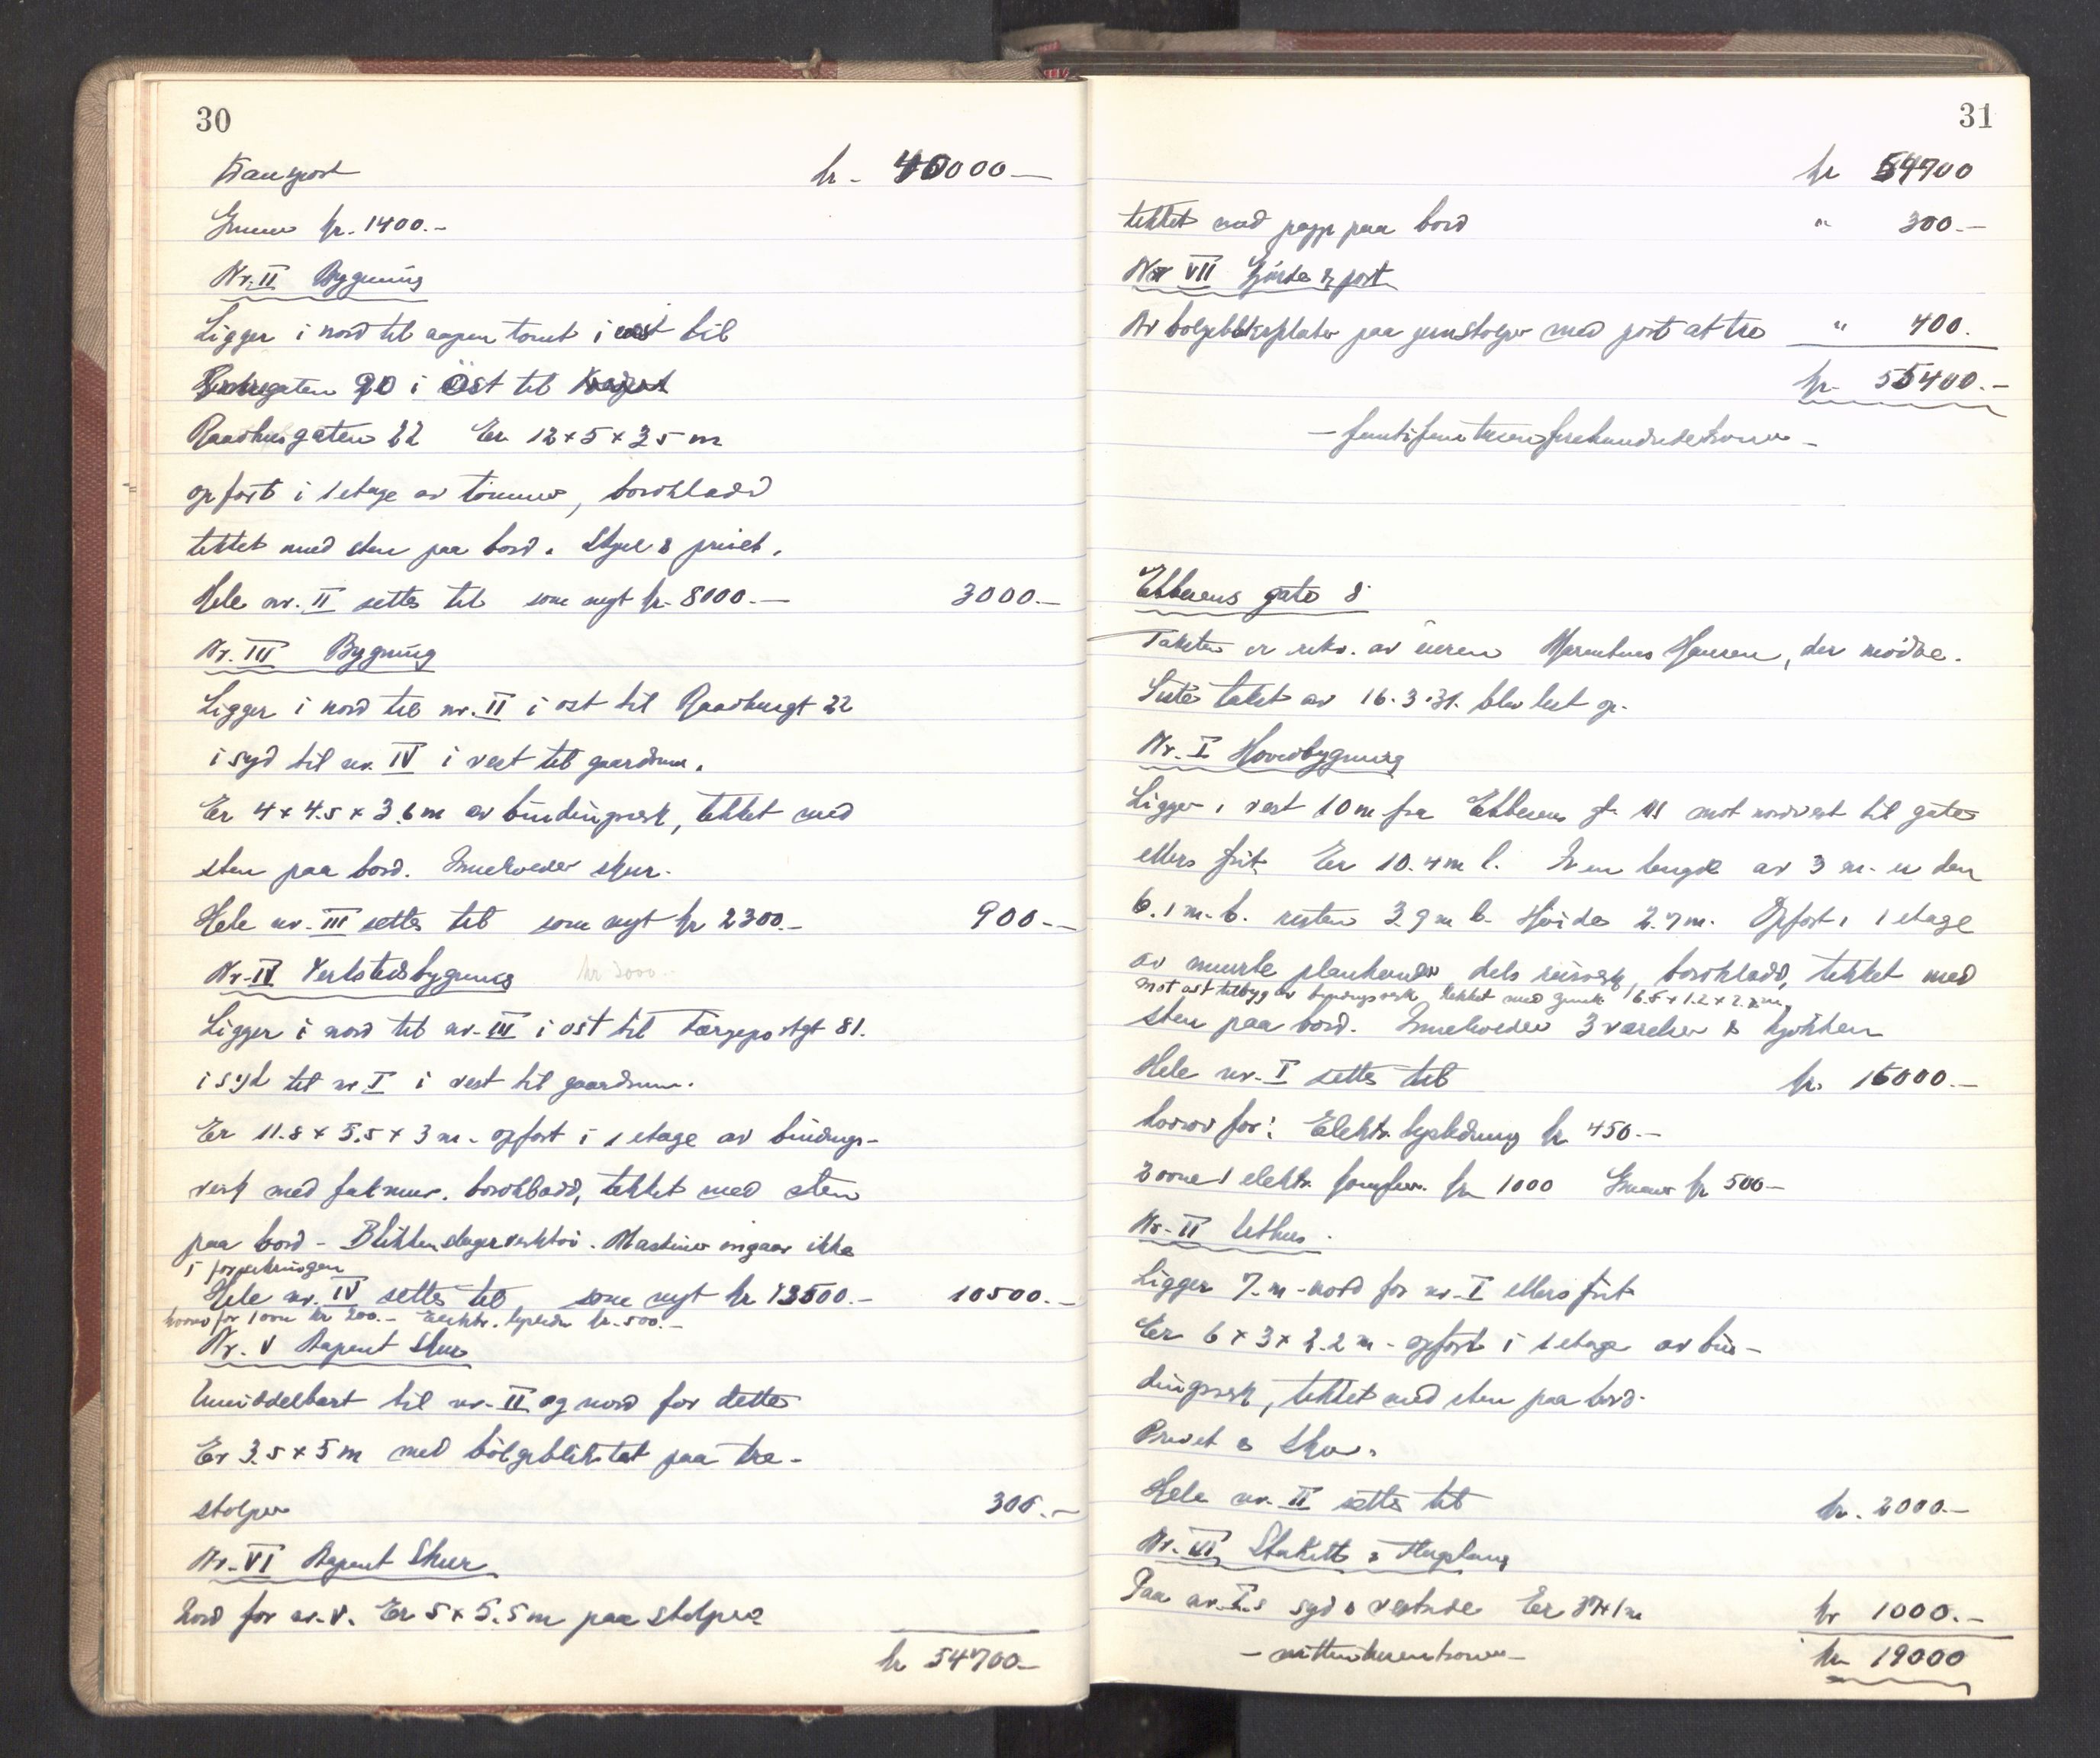 30
Transport kr. 40000.—
Grunnmur kr. 1400.—
Nr. II Bygning
Ligger i nord til aapen tomt i vest til
gaten 90 i Øst til
Raadhusgaten 22 Er 12 x 5 x 3.5 m
opført i 1 etage av tømmer, bordklædd
tekket med sten paa bord. Skjul & privet.
Hele nr. II settes til som nyt kr. 8000.— 3000.—
Nr. III Bygning
Ligger i nord til nr. II i øst til Raadhusgt 22
i syd til nr. IV i vest til gaardsrum.
Er 4 x 4.5 x 3.6 m av bindingsverk, tekket med
sten paa bord. Inneholder skur.
Hele nr. III settes til som nyt kr 2300.— 900.—
Nr. IV Verkstedsbygning kr 3000.-
Ligger i nord til nr. III i øst til Færgeportgt 81.
i syd til nr I i vest til gaardsrum.
Er 11.8 x 5.5 x 3 m. opført i 1 etage av bindings-
verk med halvmur. bordklædd, tekket med sten
paa bord - Blikkenslagerverksted. Maskiner inngaar ikke
i forsikringen
Hele nr. IV settes til som nyt kr 13500.— 10500.—
hvorav for 1 ovn kr 200.— Elektr. lysledn kr. 500.—
Nr. V Aapent Skur
Umiddelbart til nr. II og nord for dette
Er 3.5 x 5 m med bølgebliktak paa tre-
stolper 300.—
Nr. VI Aapent Skur
Nord for nr. V. Er 5 x 5.5 m paa stolper
kr 54700.—
31
kr 54700
tekket med papp paa bord " 300.—
Nr VII Gjærde & port
Av bølgeblikkplater paa jernstolper med port af tre " 400.
kr. 55400.—
— femtifemtusenfirehundredekroner —
Ebbesens gate 8
Taksten er rekv. av eieren Marentius Hansen, der mødte.
Siste takst av 16.3.31. blev lest op.
Nr. I Hovedbygning
Ligger i vest 10 m fra Ebbesens gt. mot nordvest til gate
ellers frit. Er 10.4 m l. I en lengde av 3 m. er den
6.1 m. b. resten 3.9 m b. Høide 2.7 m. Opført i 1 etage
av murte plankender dels reisverk, bordklædd, tekket med
mot øst tilbygg av bindingsverk tekket med 6.5 x 1.2 x 2.2 m
sten paa bord. Inneholder 3 værelser & kjøkken
Hele nr. I settes til kr. 16000.—
hvorav for: Elektr. lysledning kr 450.—
2 ovne 1 elektr. komfyr. kr 1000 Grunnmur kr 500—
Nr. II Uthus.
Ligger 7 m. nord for nr. I ellers frit
Er 6 x 3 x 2.2 m. opført i 1 etage av bin-
dingsverk, tekket med sten paa bord.
Privet & Skur.
Hele nr. II settes til kr. 2000.—
Nr. III Stakitt & Hagelang
Paa nr. I.s syd & vestside Er 37 x 1 m kr 1000.—
— nittentusenkroner — kr 19000